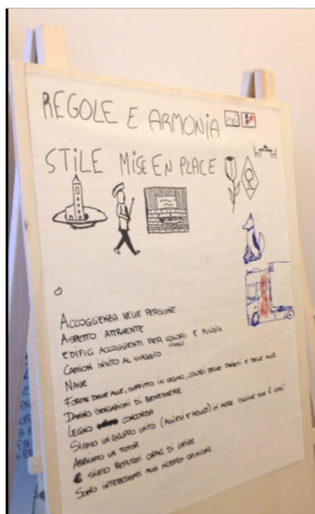 REGOLE E ARMONIA
STILE MISE EN PLACE
ACCOGLIENZA NELLE PERSONE
ASPETTO ATTRAENTE
EDIFICI ACCOGLIENTI PER COLORI E PULIZIA
CAMION INVITO AL VIAGGIO
NAVE
FORME DELLE AULE, SOFFITTO IN LEGNO, COLORI DELLE PARETI E DELLE AULE
DANNO SENSAZIONI DI BENESSERE
LEGNO CONCORDA
SIAMO UN GRUPPO UNITO (ALLIEVI E MONDO) IN ALTRE SCUOLE NON È COSÌ
ABBIAMO UN TUTOR
SIAMO REPUTATI CAPACI DI CAPIRE
SONO INTERESSATI ALLA NOSTRA OPINIONE